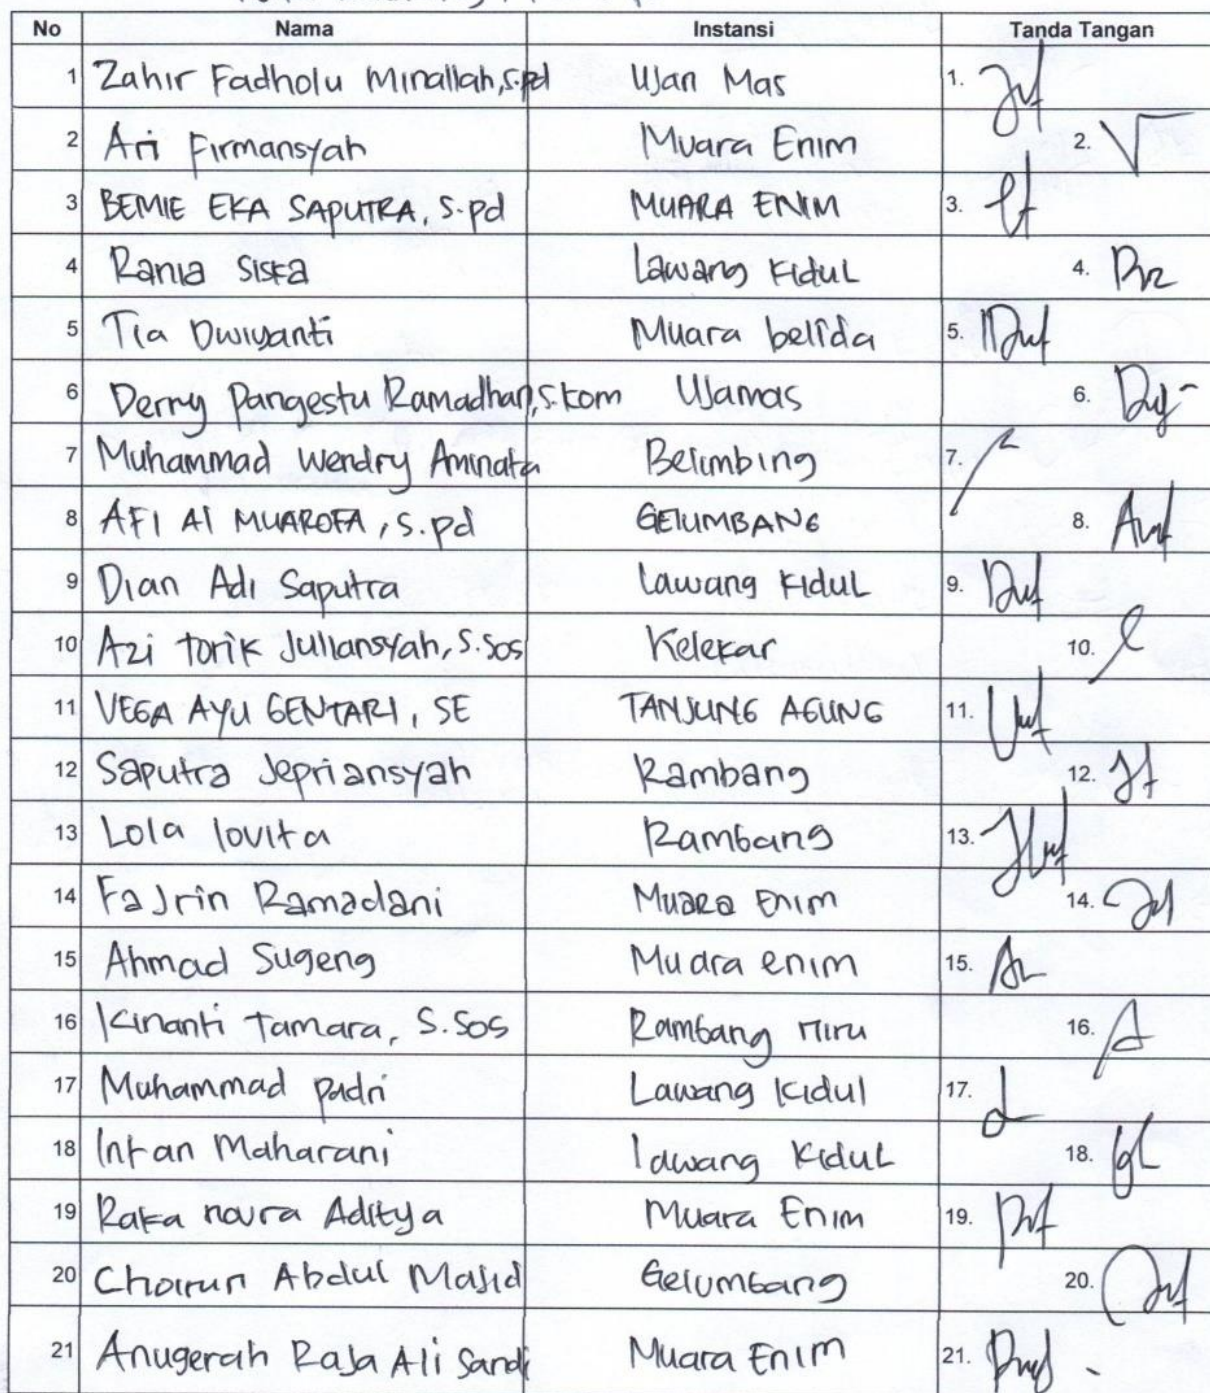 No Nama Instansi Tanda Tangan
1 Zahir Fadholu Minallah, S.pd Ujan Mas 1.
2 Ari Firmansyah Muara Enim 2.
3 BEMIE EKA SAPUTRA, S.pd MUARA ENIM 3.
4 Rania Siska Lawang Kidul 4.
5 Tia Dwiyanti Muara belida 5.
6 Derry Pangestu Ramadhan, S.kom Ujamas 6.
7 Muhammad Wendry Aminata Belimbing 7.
8 AFI Al MUAROFA, S.pd GELUMBANG 8.
9 Dian Adi Saputra Lawang Kidul 9.
10 Azi Torik Juliansyah, S.Sos Kelekar 10.
11 VEGA AYU GENTARI, SE TANJUNG AGUNG 11.
12 Saputra Jepriansyah Rambang 12.
13 Lola lovita Rambang 13.
14 Fajrin Ramadani Muara Enim 14.
15 Ahmad Sugeng Muara enim 15.
16 Kinanti Tamara, S.Sos Rambang niru 16.
17 Muhammad padri Lawang Kidul 17.
18 Intan Maharani lawang Kidul 18.
19 Raka novra Aditya Muara Enim 19.
20 Choirun Abdul Majid Gelumbang 20.
21 Anugerah Raja Ali Sandi Muara Enim 21.